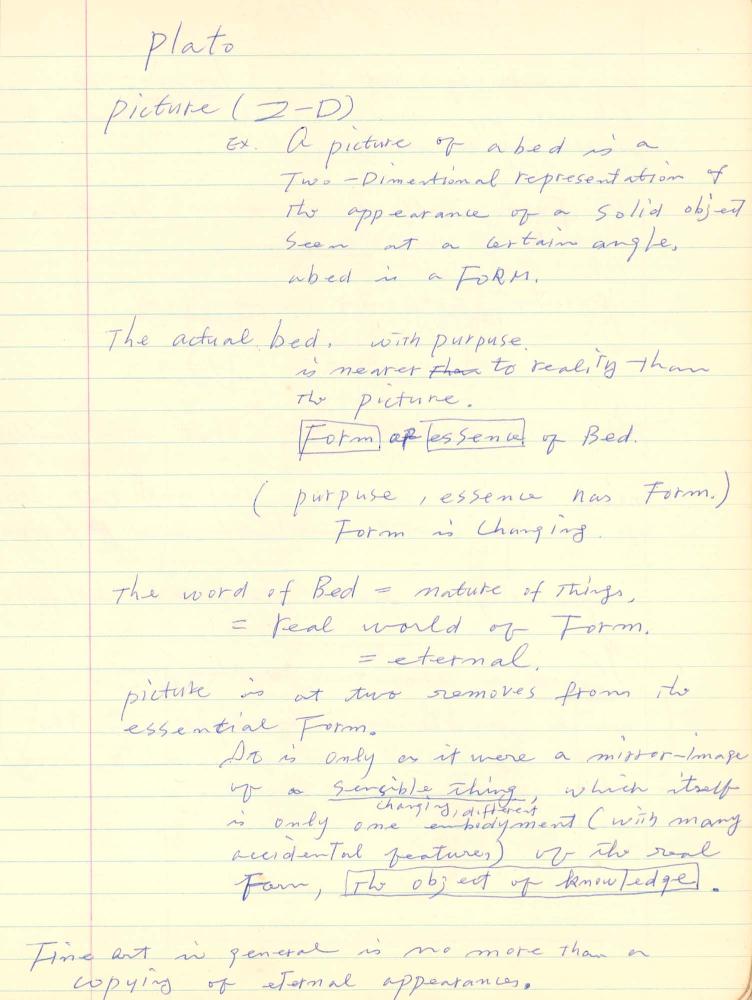 Plato
picture (2-D)
Ex. A picture of a bed is a
Two-Dimentional representation of
the appearance of a solid object
seen at a certain angle.
a bed is a FORM.
The actual bed. with purpuse.
is nearer than to reality than
the picture.
Form or essence of Bed.
( purpuse, essence has Form.)
Form is changing.
The word of Bed = nature of Things,
= real world of Form.
= eternal.
picture is at two removes from the
essential Form.
It is only as it were a mirror-image
of a sensible thing, which itself
changing, different
is only one embidyment (with many
accidental features) of the real
Form, the object of knowledge.
Fine art in general is no more than a
copying of eternal appearances.